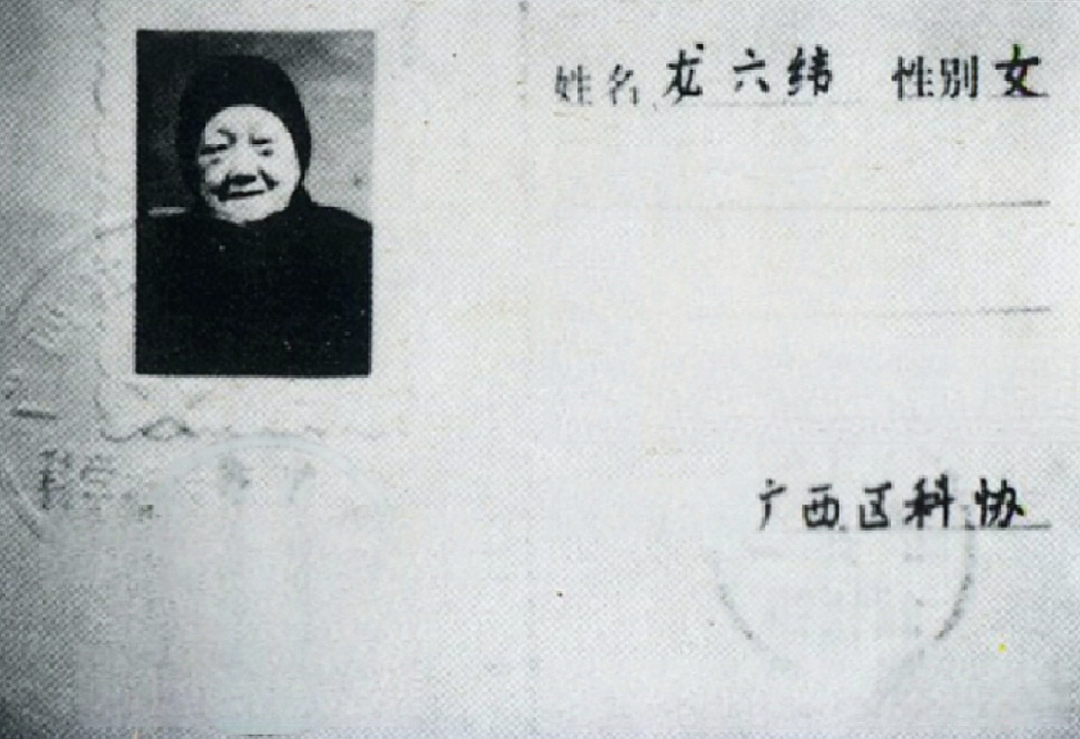 姓名 龙六纬 性别 女
广西区科协